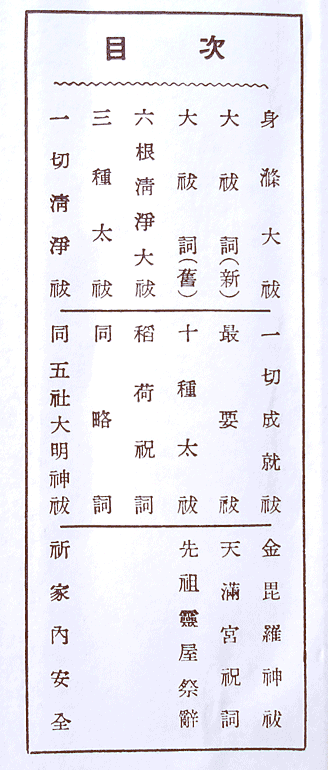 目次
身滌大祓
大祓詞(新)
大祓詞(舊)
六根清淨大祓
三種太祓
一切清淨祓
一切成就祓
最要祓
十種太祓
稻荷祝詞
同略詞
同五社大明神祓
金毘羅神祓
天滿宮祝詞
先祖靈屋祭辭
祈家內安全